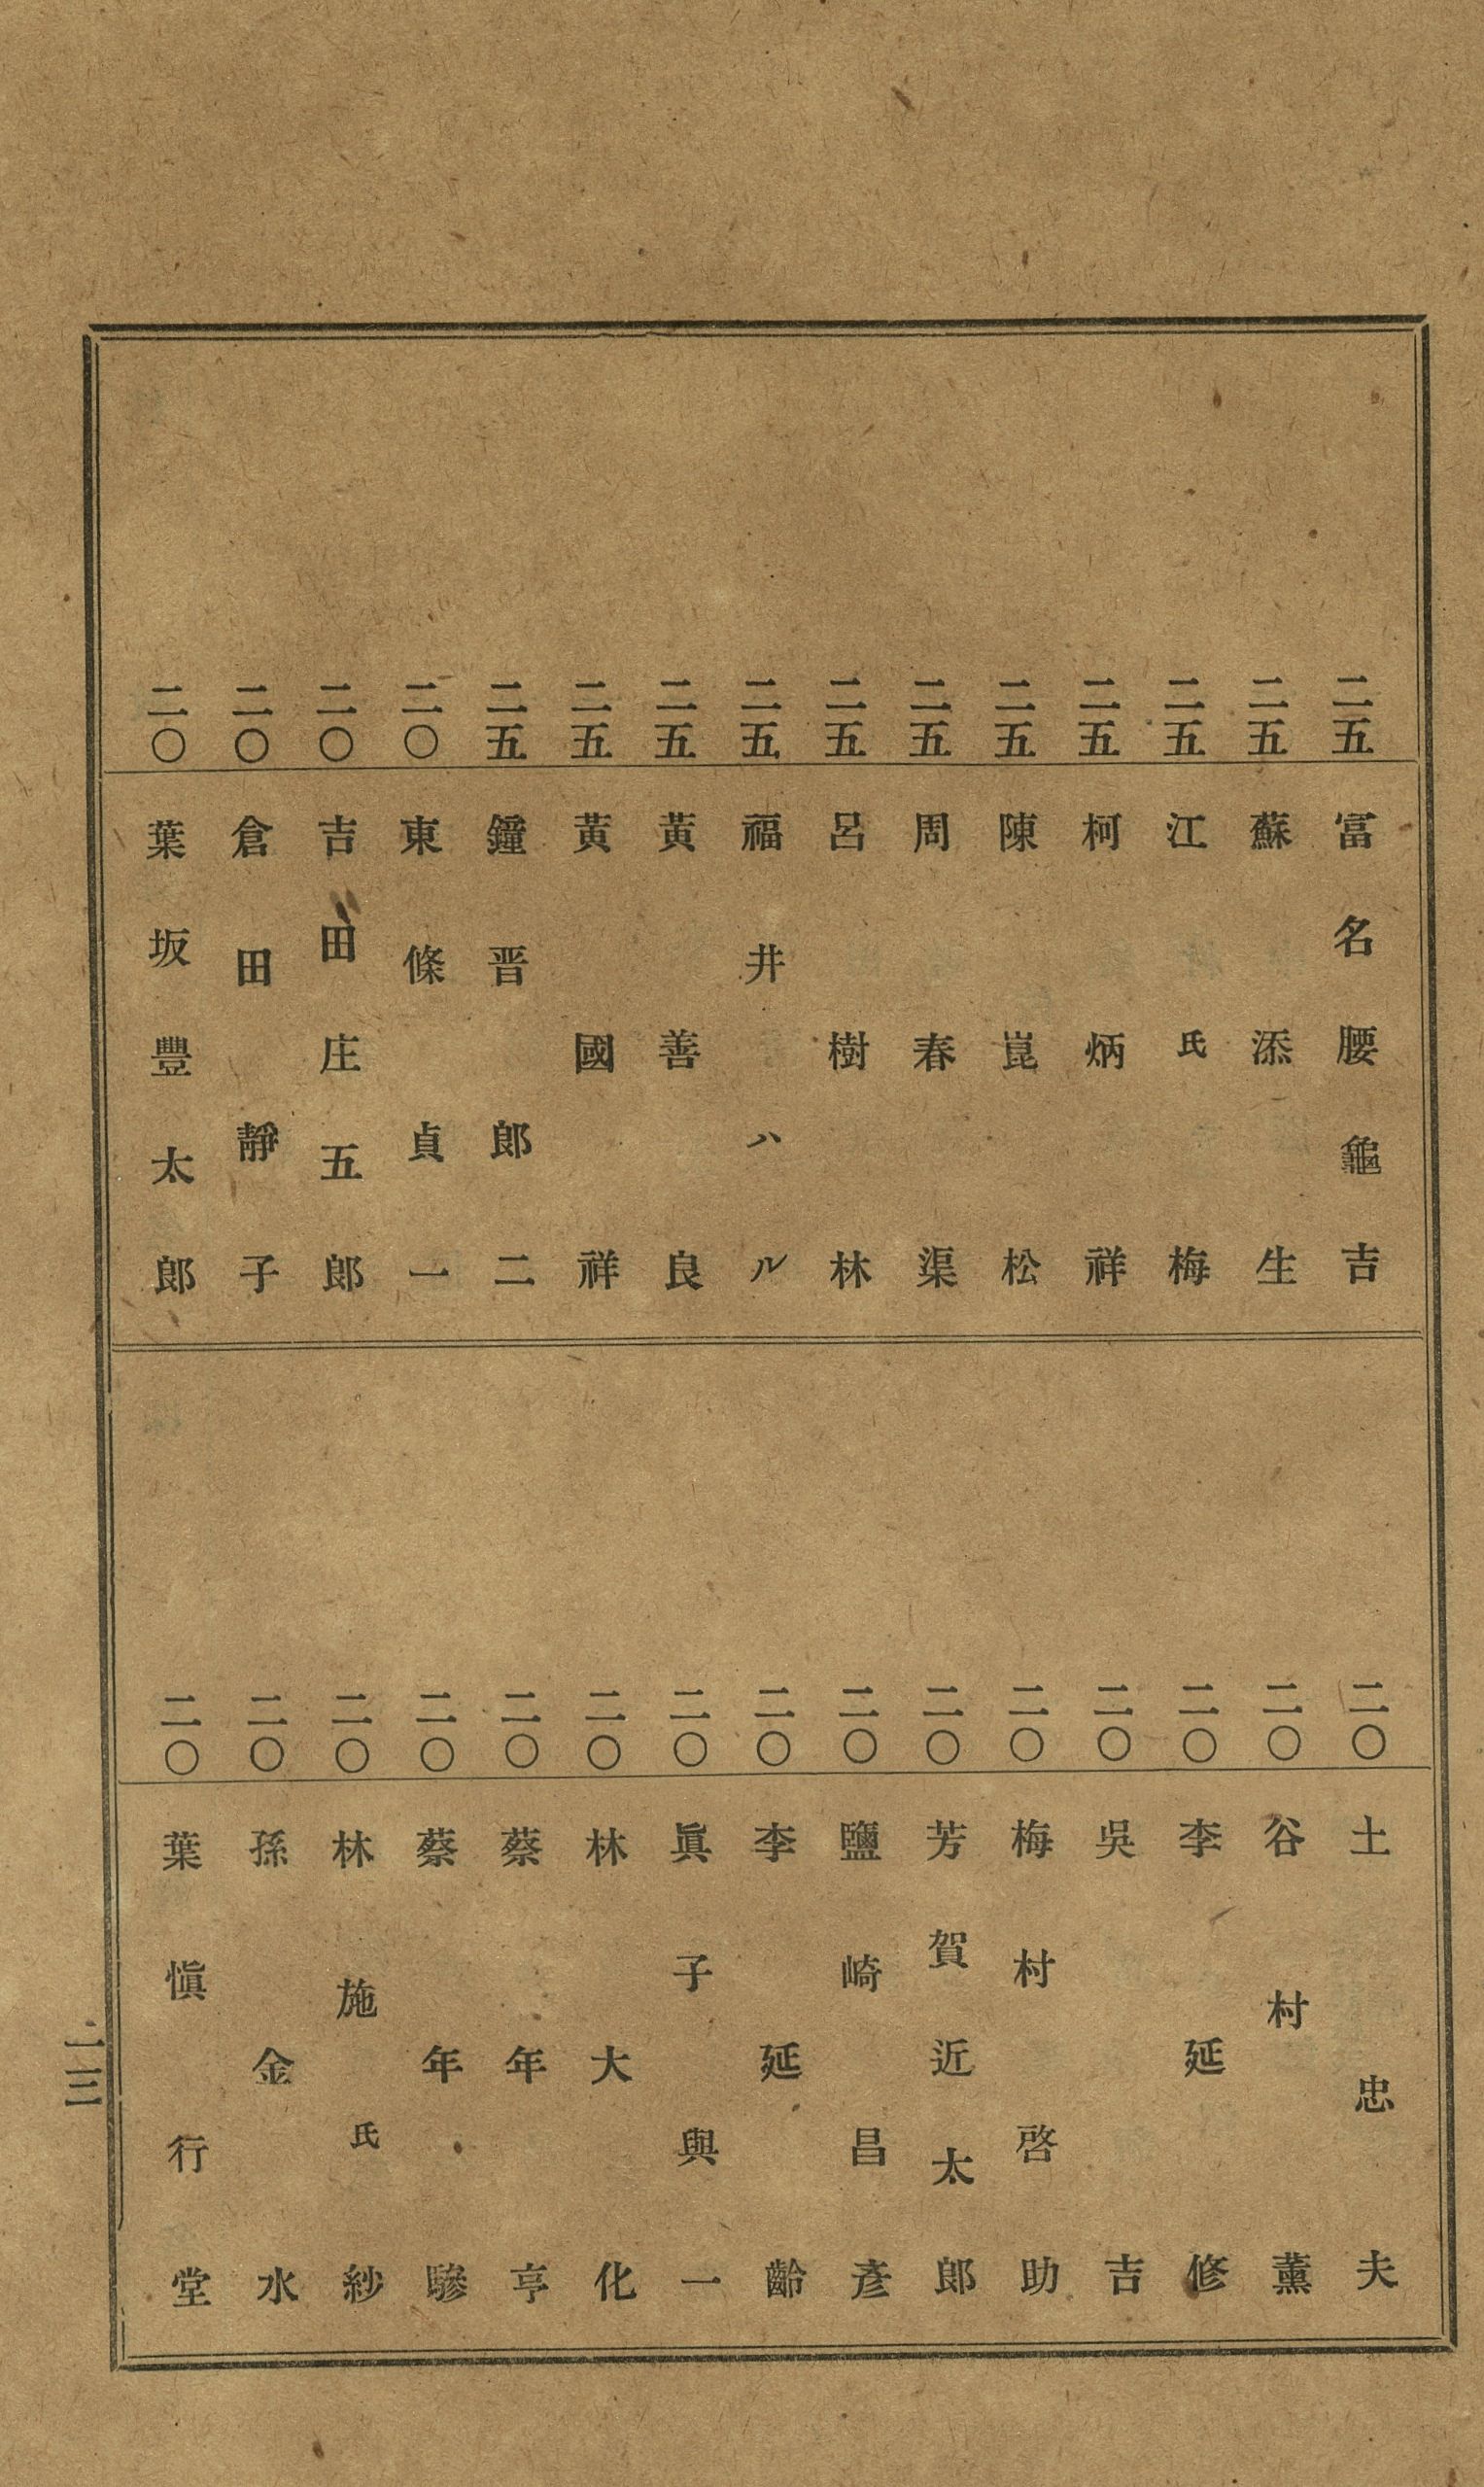 二五 富名腰龜吉
二五 蘇添生
二五 江氏梅
二五 柯炳祥
二五 陳崑松
二五 周春渠
二五 呂樹林
二五 福井ハル
二五 黃善良
二五 黃國祥
二五 鐘晋郎二
二〇 東條貞一
二〇 吉田庄五郎
二〇 倉田靜子
二〇 葉坂豐太郎
二〇 土忠夫
二〇 谷村薰
二〇 李延修
二〇 吳吉
二〇 梅村啓助
二〇 芳賀近太郎
二〇 鹽崎昌彥
二〇 李延齡
二〇 眞子與一
二〇 林大化
二〇 蔡年亨
二〇 蔡年驂
二〇 林施氏紗
二〇 孫金水
二〇 葉愼行堂
一三